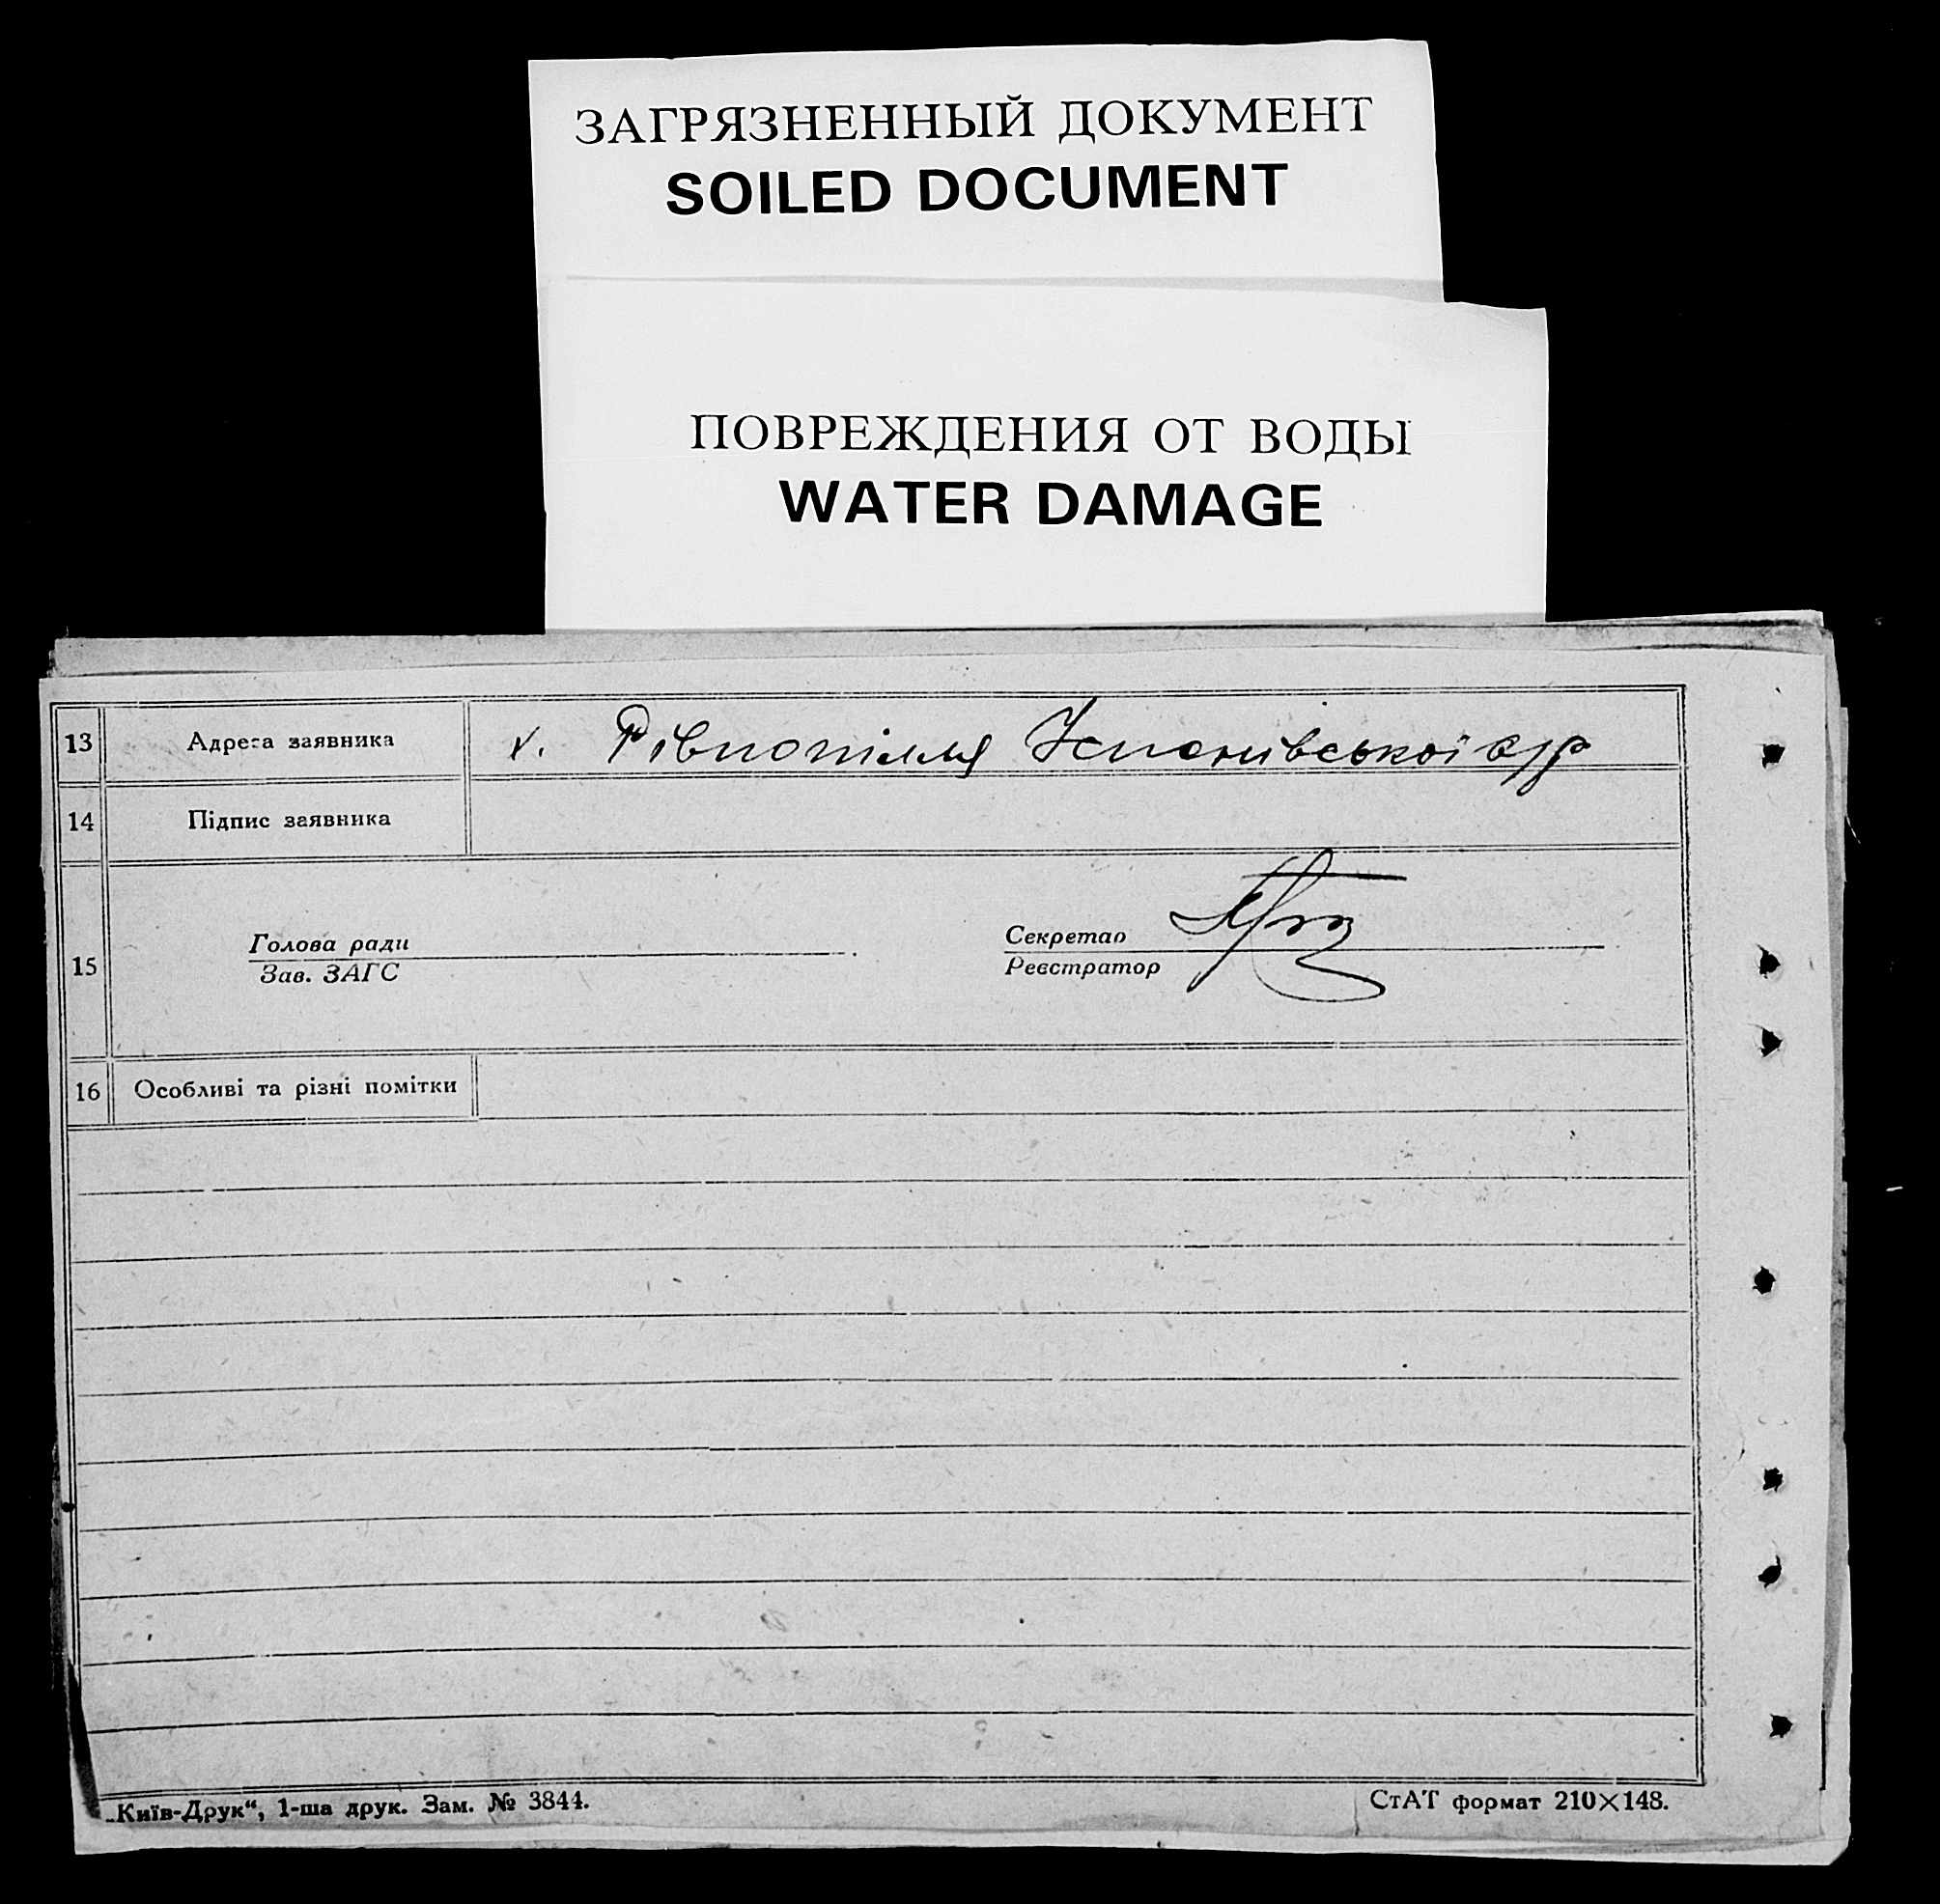 ЗАГРЯЗНЕННЫЙ ДОКУМЕНТ
SOILED DOCUMENT
ПОВРЕЖДЕНИЯ ОТ ВОДЫ
WATER DAMAGE
13 Адреса заявника х. Рівнопілля Успенівської с/р
14 Підпис заявника
15 Голова ради Секретар
Зав. ЗАГС Реєстратор
16 Особливі та різні помітки
„Київ-Друк“, 1-ша друк. Зам. № 3844. СтАТ формат 210×148.